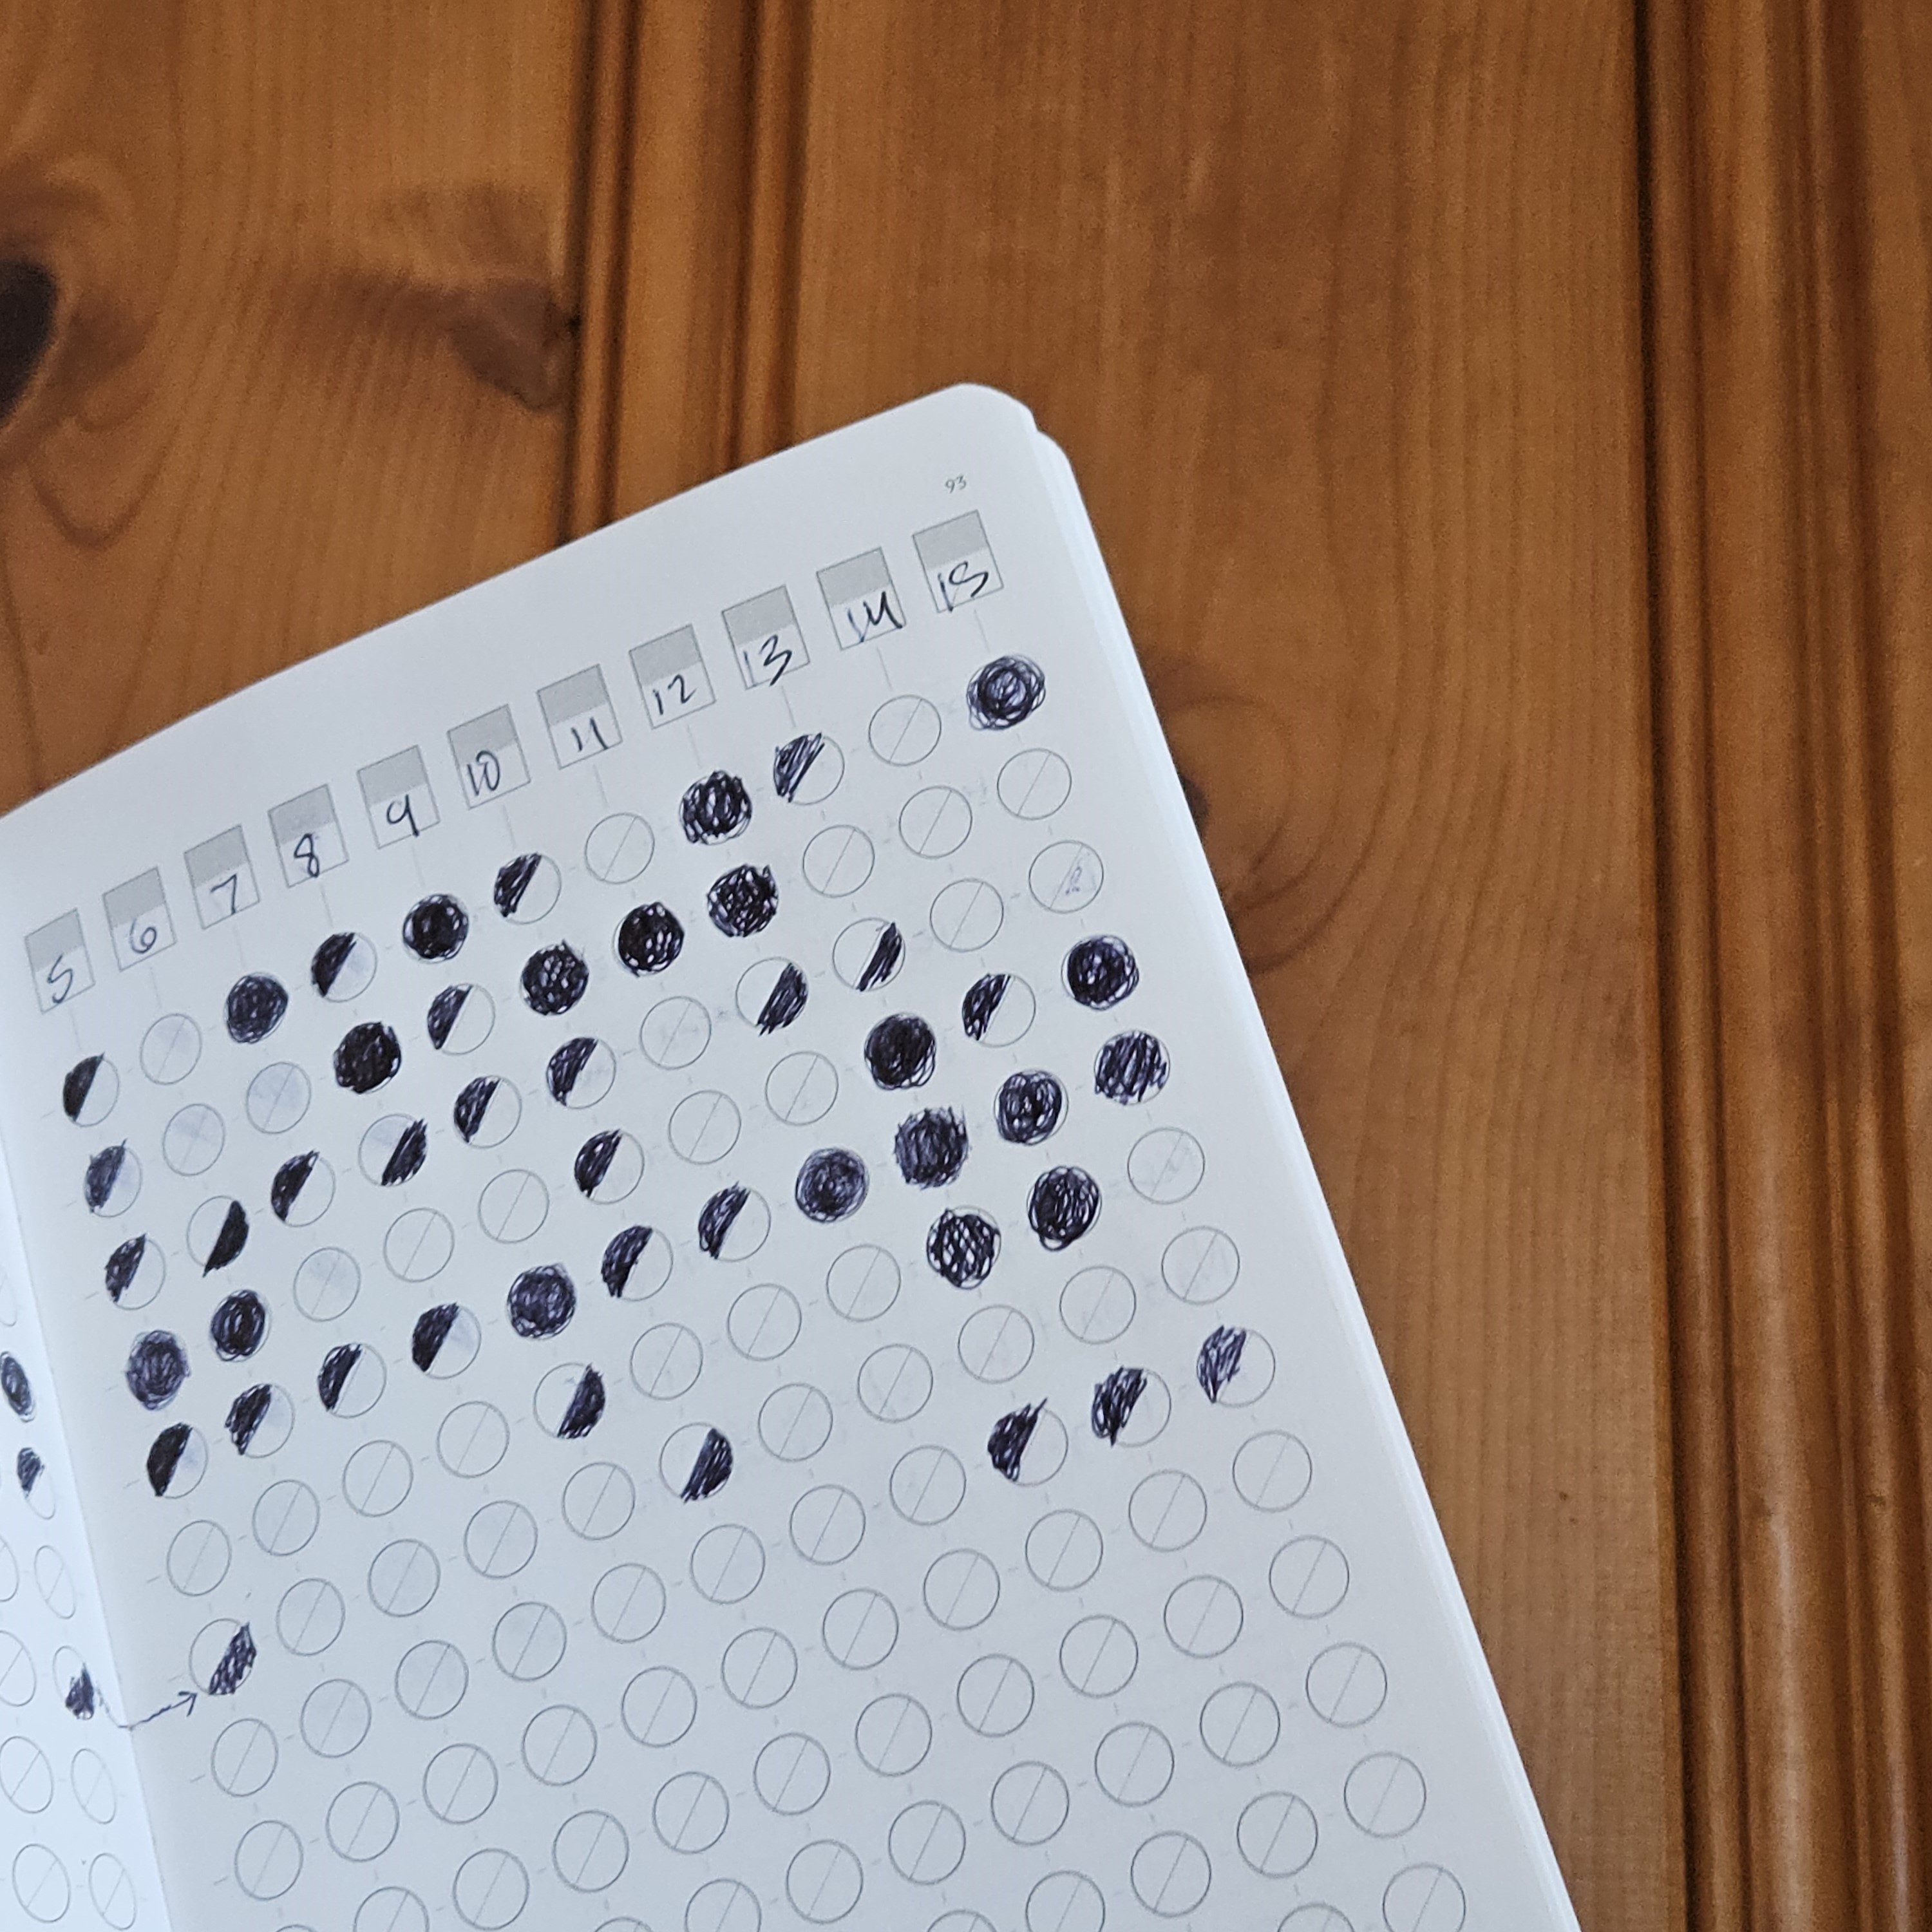 93
5 6 7 8 9 10 11 12 13 14 15